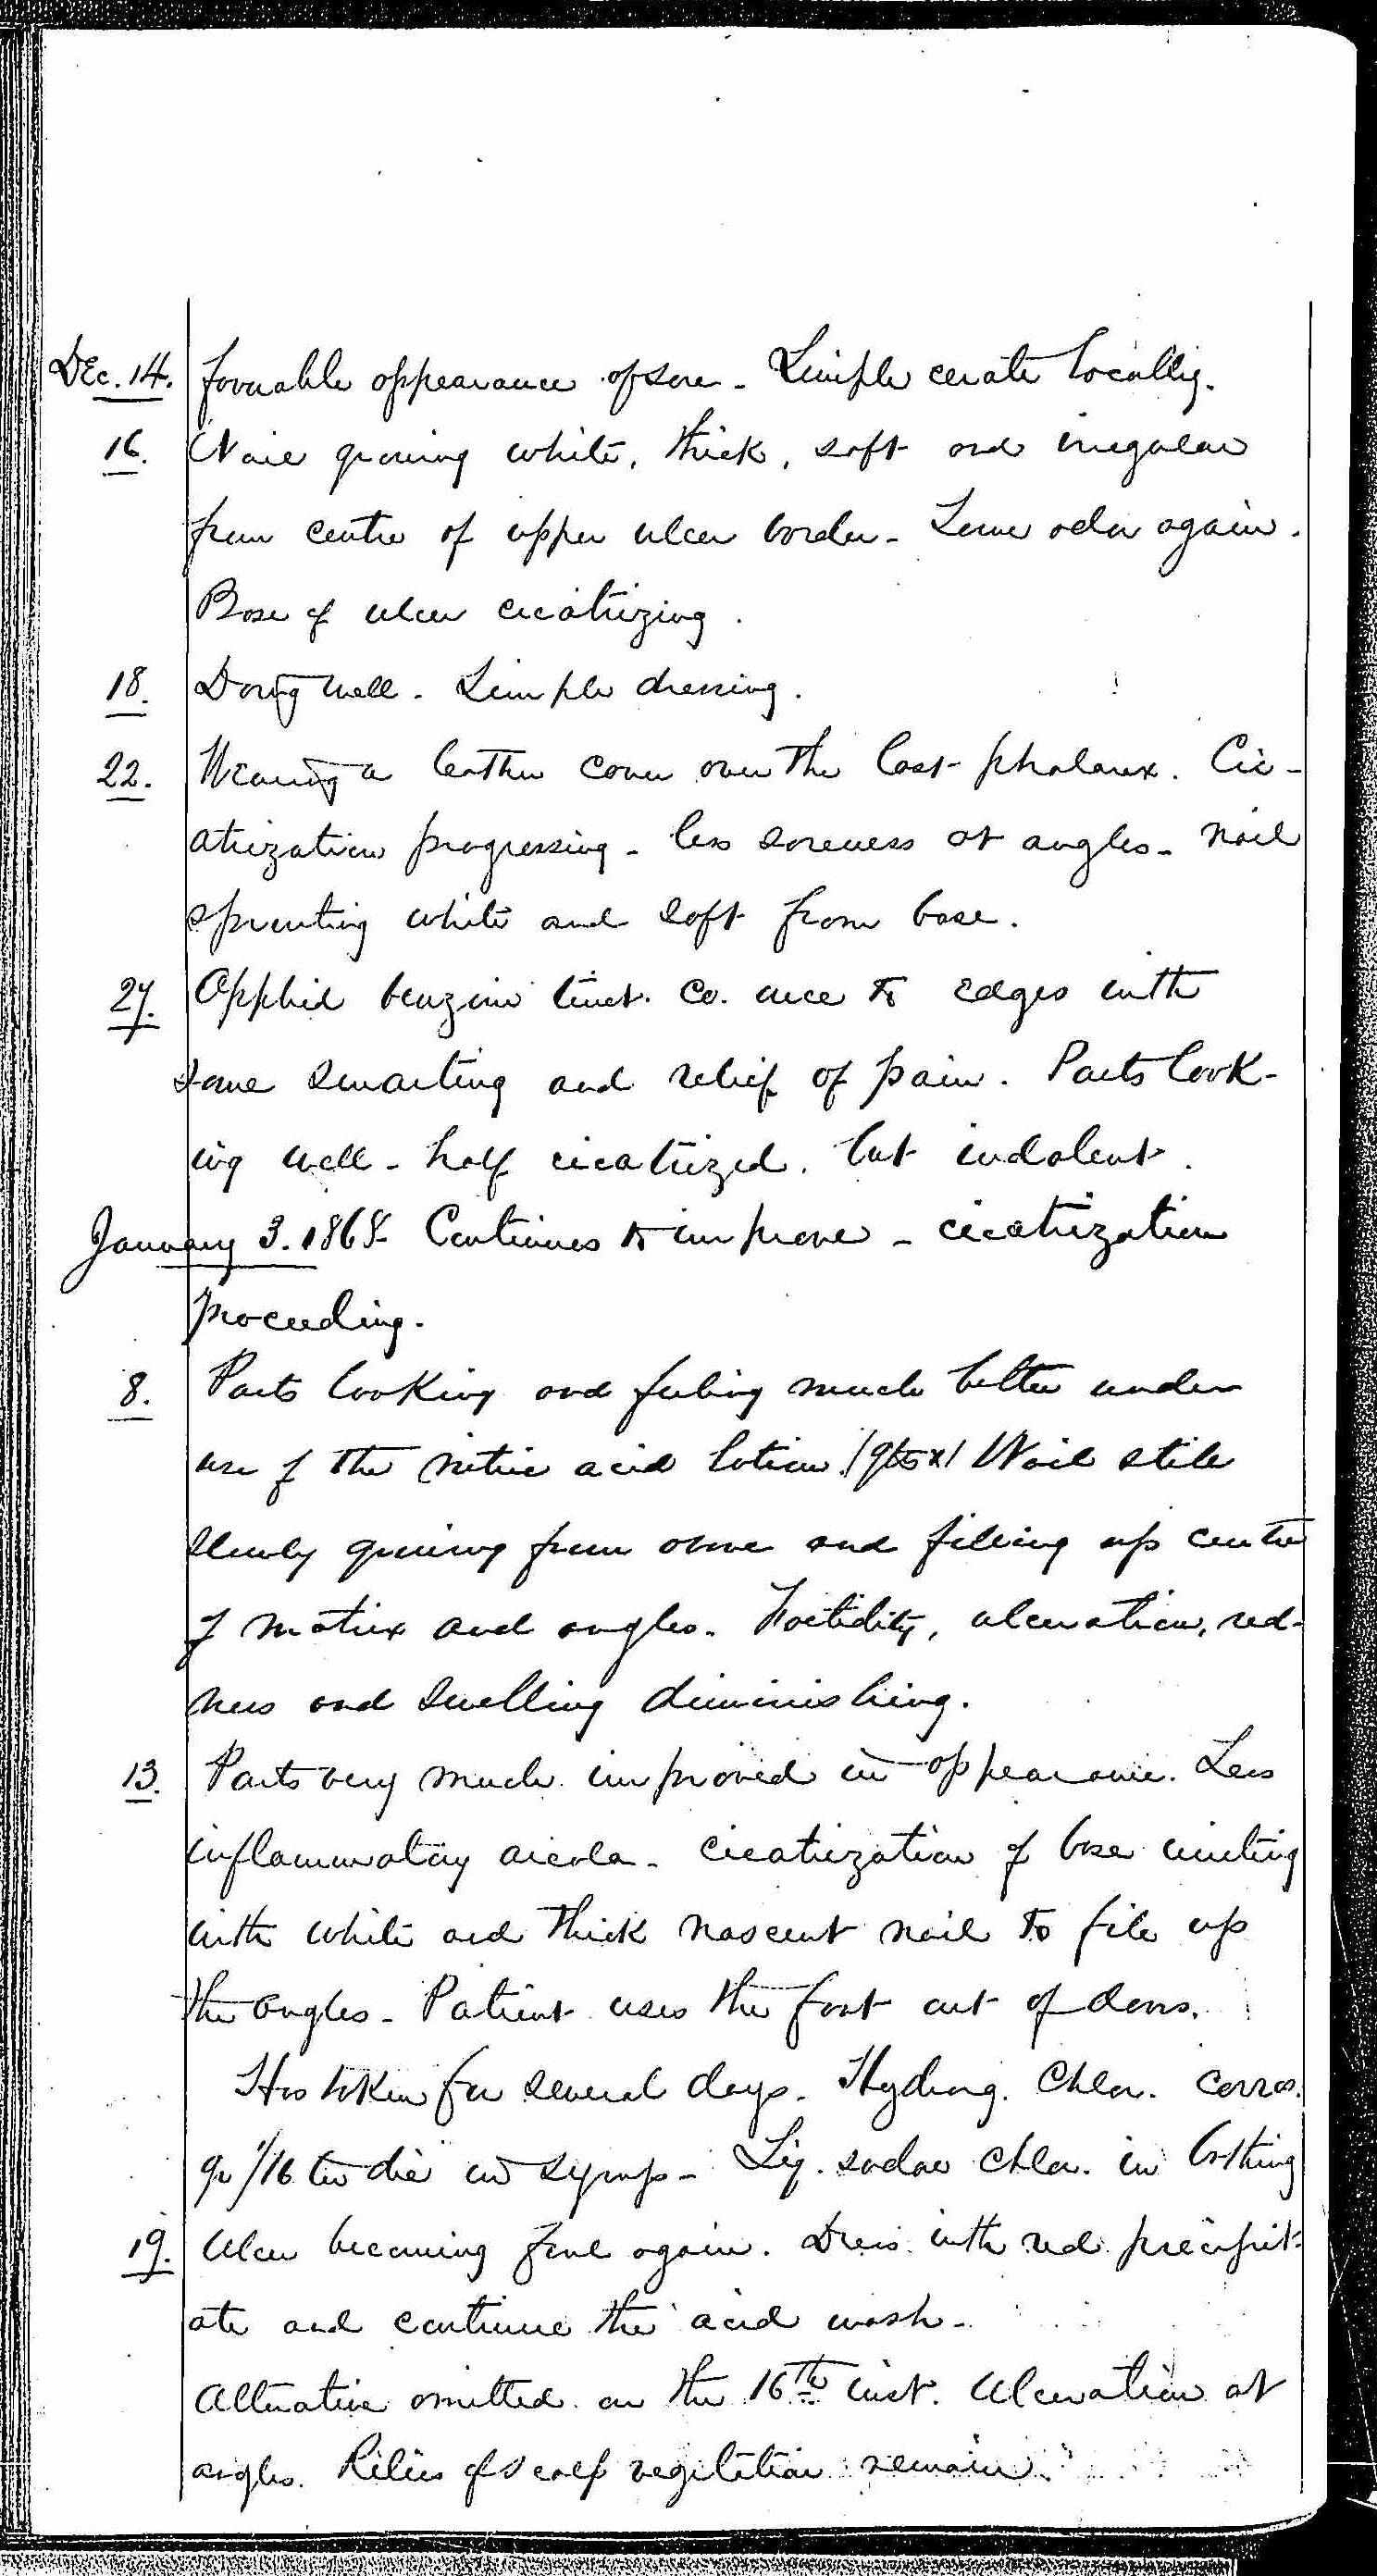 Dec. 14. favorable appearance of sore - Simple cerate locally.
16. Nail growing white, thick, soft and irregular
from centre of upper ulcer border - Some odor again.
Base of ulcer cicatrizing.
18. Doing well - Simple dressing.
22. Wearing a leather cover over the last phalanx. Cic-
atrization progressing - less soreness at angles - nail
sprouting white and soft from base.
27. Applied benzoin tinct. co. once to edges with
some smarting and relief of pain. Parts look-
ing well - half cicatrized, but indolent.
January 3. 1868 Continues to improve - cicatrization
proceeding.
8. Parts looking and feeling much better under
use of the nitric acid lotion. Nail still
slowly growing from above and filling up centre
of matrix and angles. Foetidity, ulceration, red-
ness and swelling diminishing.
13. Parts very much improved in appearance. Less
inflammatory areola - cicatrization of base uniting
with white and thick nascent nail to fill up
the angles - Patient uses the foot out of doors.
Has taken for several days - Hydrarg. Chlor. Corros.
gr 1/16 ter die in syrup - Liq. sodae chlor. in bathing
19. Ulcer becoming foul again. Dress with red precipit-
ate and continue the acid wash -
Alterative omitted on the 16th inst. Ulceration at
angles. of scalp remain.